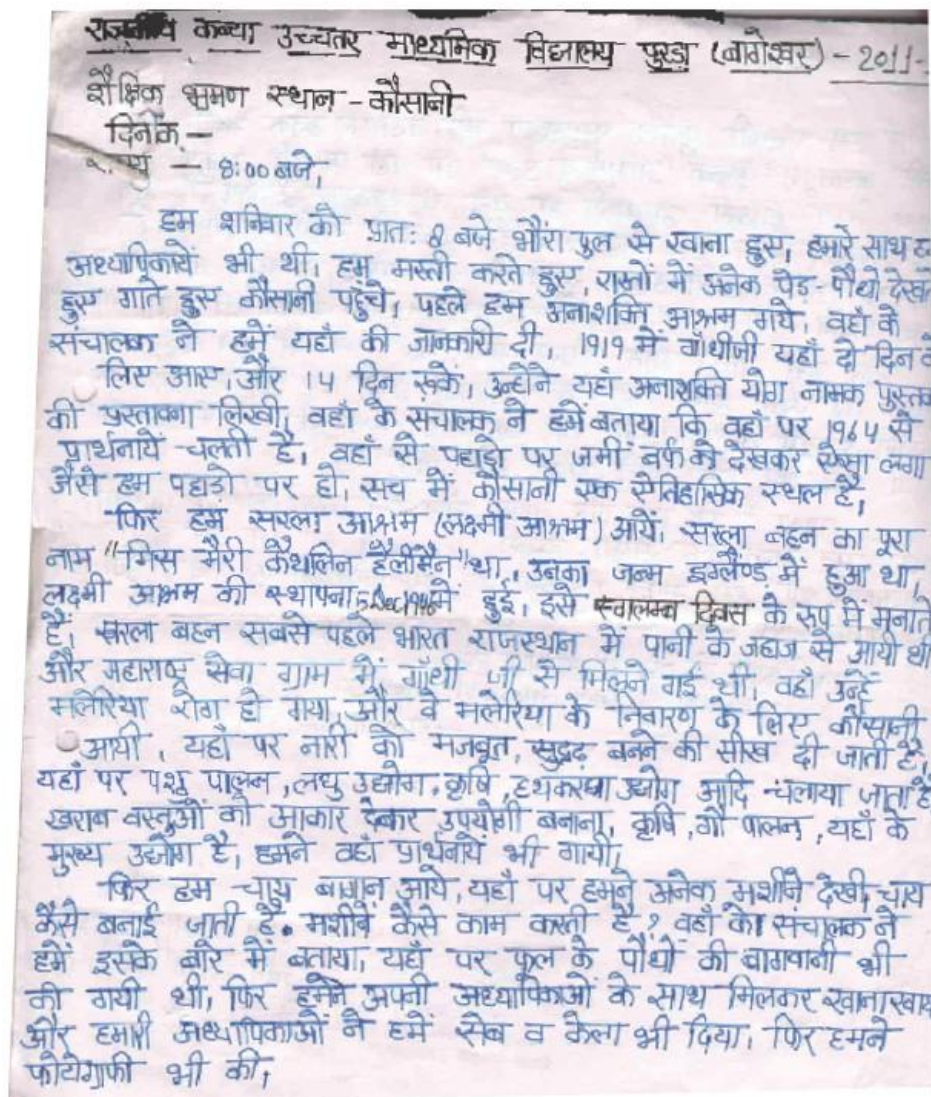 राजकीय कन्या उच्चतर माध्यमिक विद्यालय पुरडा (बागेश्वर) - 2011-
शैक्षिक भ्रमण स्थान - कौसानी
दिनाँक -
- 8:00 बजे,
हम शनिवार को प्रातः 8 बजे भौंरा पुल से रवाना हुए, हमारे साथ
अध्यापिकायें भी थी, हम मस्ती करते हुए, रास्तों में अनेक पेड़-पौधो देखते
हुए गाते हुए कौसानी पहुंचे, पहले हम अनाशक्ति आश्रम गये, वहाँ के
संचालक ने हमें यहाँ की जानकारी दी, 1919 में गाँधीजी यहाँ दो दिन के
लिए आए, और 14 दिन रुकें, उन्होने यहाँ अनाशक्ति योग नामक पुस्तक
की प्रस्तावना लिखी, वहाँ के सचालक ने हमें बताया कि वहाँ पर 1964 से
प्रार्थनायें चलती है, वहाँ से पहाड़ो पर जमीं बर्फ को देखकर ऐसा लगा
जैसे हम पहाड़ो पर हो, सच में कौसानी एक ऐतिहासिक स्थल है,
फिर हम सरला आश्रम (लक्ष्मी आश्रम) आयें, सरला बहन का पूरा
नाम "मिस मैरी कैथलिन हैलीमैन" था, उनका जन्म इंग्लैण्ड में हुआ था,
लक्ष्मी आश्रम की स्थापना 5 Dec 1946 में हुई, इसे स्वालम्ब दिवस के रूप में मनाते
हैं, सरला बहन सबसे पहले भारत राजस्थान में पानी के जहाज से आयी थी
और महाराष्ट्र सेवा ग्राम में गाँधी जी से मिलने गई थी, वहाँ उन्हें
मलेरिया रोग हो गया, और वे मलेरिया के निवारण के लिए कौसानी
आयी, यहाँ पर नारी को मजबूत, सुद्रढ़ बनने की सीख दी जाती है,
यहाँ पर पशु पालन, लघु उद्योग, कृषि, हथकरघा उद्योग आदि चलाया जाता है
खराब वस्तुओं को आकार देकर उपयोगी बनाना, कृषि, गौ पालन, यहाँ के
मुख्य उद्योग है, हमने वहाँ प्रार्थनायें भी गायी,
फिर हम चाय बागान आये, यहाँ पर हमने अनेक मशीने देखी, चाय
कैसे बनाई जाती है. मशीनें कैसे काम करती है? वहाँ के संचालक ने
हमें इसके बारे में बताया, यहाँ पर फूल के पौधों की बागवानी भी
की गयी थी, फिर हमने अपनी अध्यापिकाओं के साथ मिलकर खाना खाया
और हमारी अध्यापिकाओं ने हमें सेब व केला भी दिया, फिर हमने
फोटोग्राफी भी की,